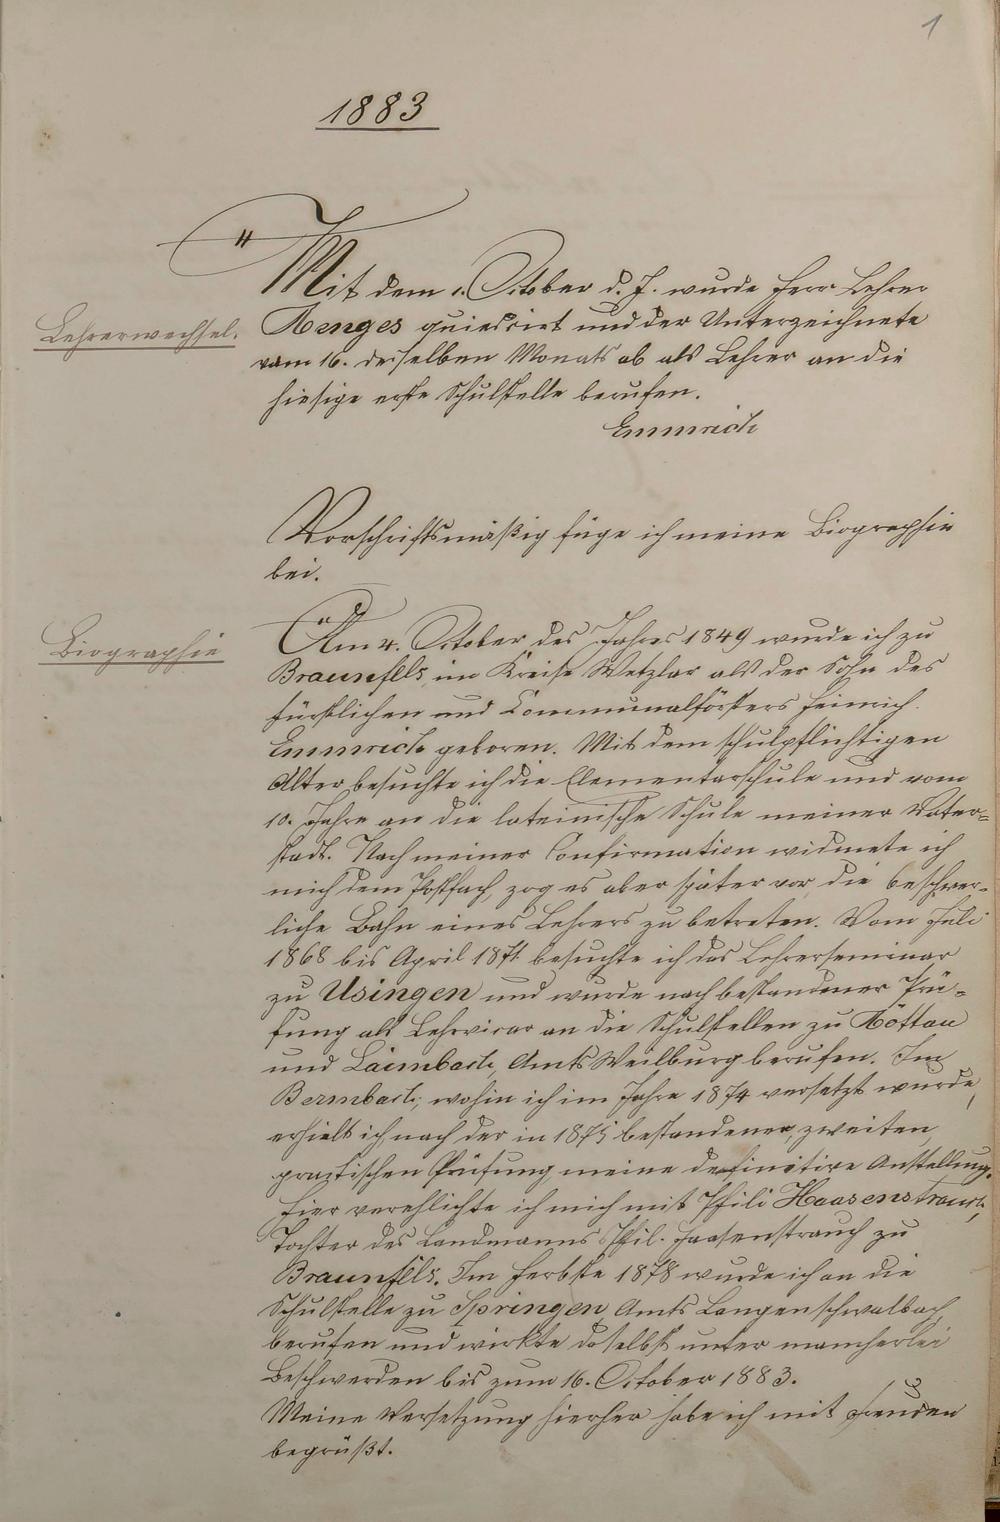 1
1883
Mit dem 1. October d. J. wurde Herr Lehrer
Lehrerwechsel.
Menges quiescirt und der Unterzeichnete
vom 16. desselben Monats ab als Lehrer an die
hiesige erste Schulstelle berufen.
Emmrich
Vorschriftsmäßig füge ich meine Biographie
bei.
Biographie
Am 4. October des Jahres 1849 wurde ich zu
Braunfels, im Kreise Wetzlar als der Sohn des
fürstlichen und Communalförsters Heinrich
Emmrich geboren. Mit dem schulpflichtigen
Alter besuchte ich die Elementarschule und vom
10. Jahre an die lateinische Schule meiner Vater=
stadt. Nach meiner Confirmation widmete ich
mich dem Postfach, zog es aber später vor, die beschwer=
liche Bahn eines Lehrers zu betreten. Vom Juli
1868 bis April 1871 besuchte ich das Lehrerseminar
zu Usingen und wurde nach bestandener Prü=
fung als Lehrvicar an die Schulstellen zu
und Laimbach, Amts Weilburg berufen. Im
Bermbach, wohin ich im Jahre 1874 versetzt wurde,
erhielt ich nach der in 1875 bestandenen, zweiten,
practischen Prüfung meine definitive Anstellung.
Hier verehlichte ich mich mit Phili Haasenstrauch,
Tochter des Landmanns Phil. Haasenstrauch zu
Braunfels. Im Herbste 1878 wurde ich an die
Schulstelle zu Springen, Amts Langenschwalbach,
berufen und wirkte daselbst unter mancherlei
Beschwerden bis zum 16. October 1883.
Meine Versetzung hierher habe ich mit Freuden
begrüßt.